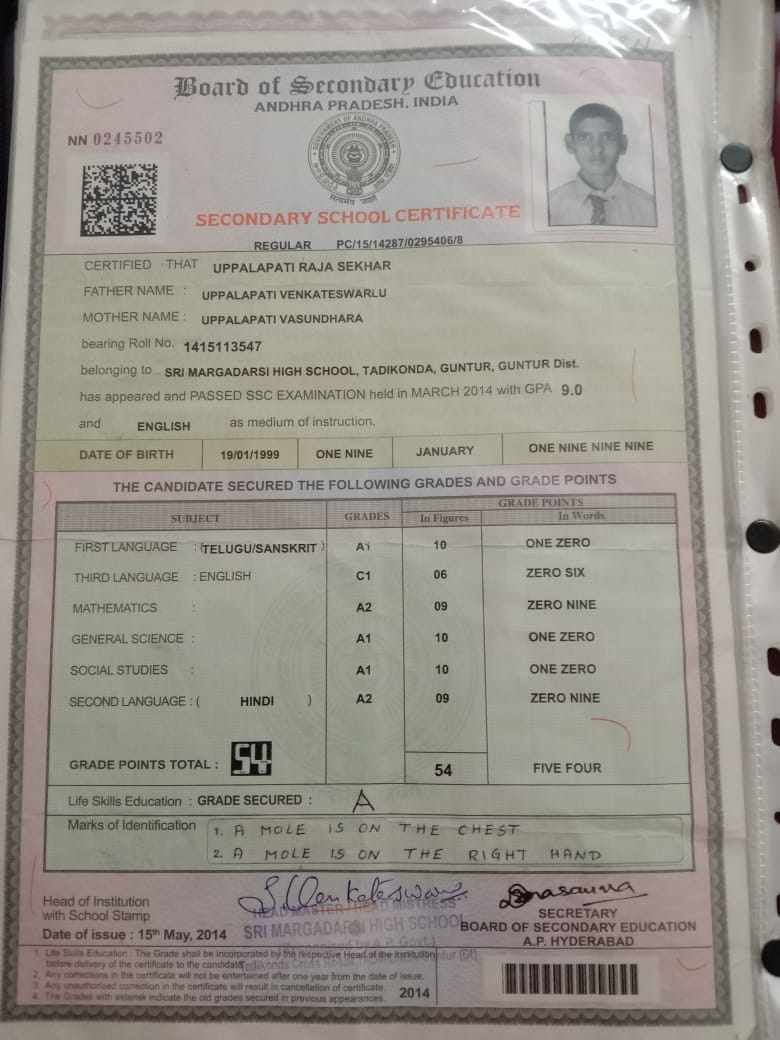 Board of Secondary Education
ANDHRA PRADESH, INDIA
NN 0245502
GOVERNMENT OF ANDHRA PRADESH
सत्यमेव जयते
SECONDARY SCHOOL CERTIFICATE
REGULAR PC/15/14287/0295406/8
CERTIFIED THAT UPPALAPATI RAJA SEKHAR
FATHER NAME : UPPALAPATI VENKATESWARLU
MOTHER NAME : UPPALAPATI VASUNDHARA
bearing Roll No. 1415113547
belonging to SRI MARGADARSI HIGH SCHOOL, TADIKONDA, GUNTUR, GUNTUR Dist.
has appeared and PASSED SSC EXAMINATION held in MARCH 2014 with GPA 9.0
and ENGLISH as medium of instruction.
DATE OF BIRTH 19/01/1999 ONE NINE JANUARY ONE NINE NINE NINE
THE CANDIDATE SECURED THE FOLLOWING GRADES AND GRADE POINTS
SUBJECT GRADES GRADE POINTS
In Figures In Words
FIRST LANGUAGE : (TELUGU/SANSKRIT ) A1 10 ONE ZERO
THIRD LANGUAGE : ENGLISH C1 06 ZERO SIX
MATHEMATICS : A2 09 ZERO NINE
GENERAL SCIENCE : A1 10 ONE ZERO
SOCIAL STUDIES : A1 10 ONE ZERO
SECOND LANGUAGE : ( HINDI ) A2 09 ZERO NINE
GRADE POINTS TOTAL : 54 54 FIVE FOUR
Life Skills Education : GRADE SECURED : A
Marks of Identification 1. A MOLE IS ON THE CHEST
2. A MOLE IS ON THE RIGHT HAND
Head of Institution
with School Stamp
HEAD MASTER / HEAD MISTRESS
SRI MARGADARSI HIGH SCHOOL
SECRETARY
BOARD OF SECONDARY EDUCATION
A.P. HYDERABAD
Date of issue : 15th May, 2014
1. Life Skills Education : The Grade shall be Incorporated by the respective Head of the Institution
before delivery of the certificate to the candidate.
2. Any corrections in the certificate will not be entertained after one year from the date of issue.
3. Any unauthorised correction in the certificate will result in cancellation of certificate.
4. The Grades with asterisk indicate the old grades secured in previous appearances.
2014